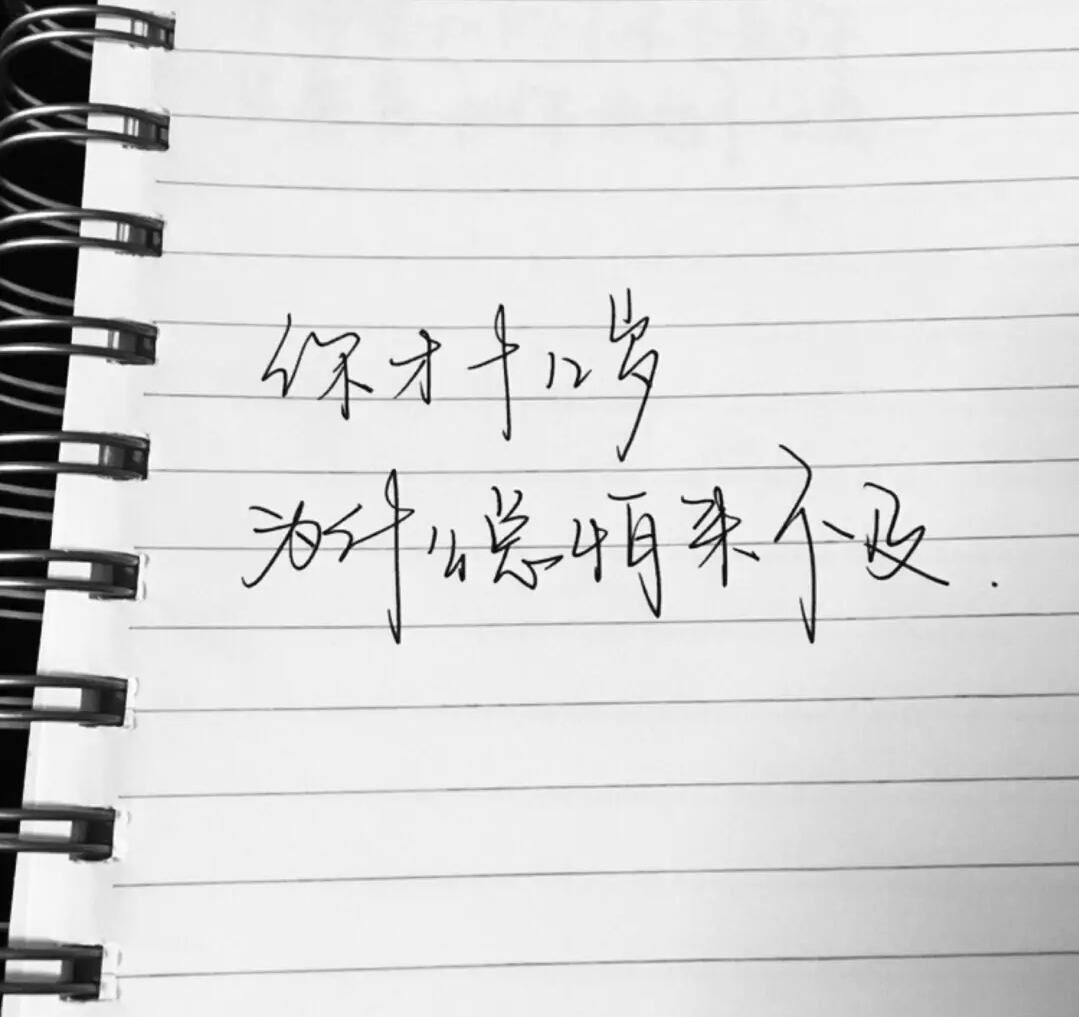 你才十几岁
为什么总怕来不及.